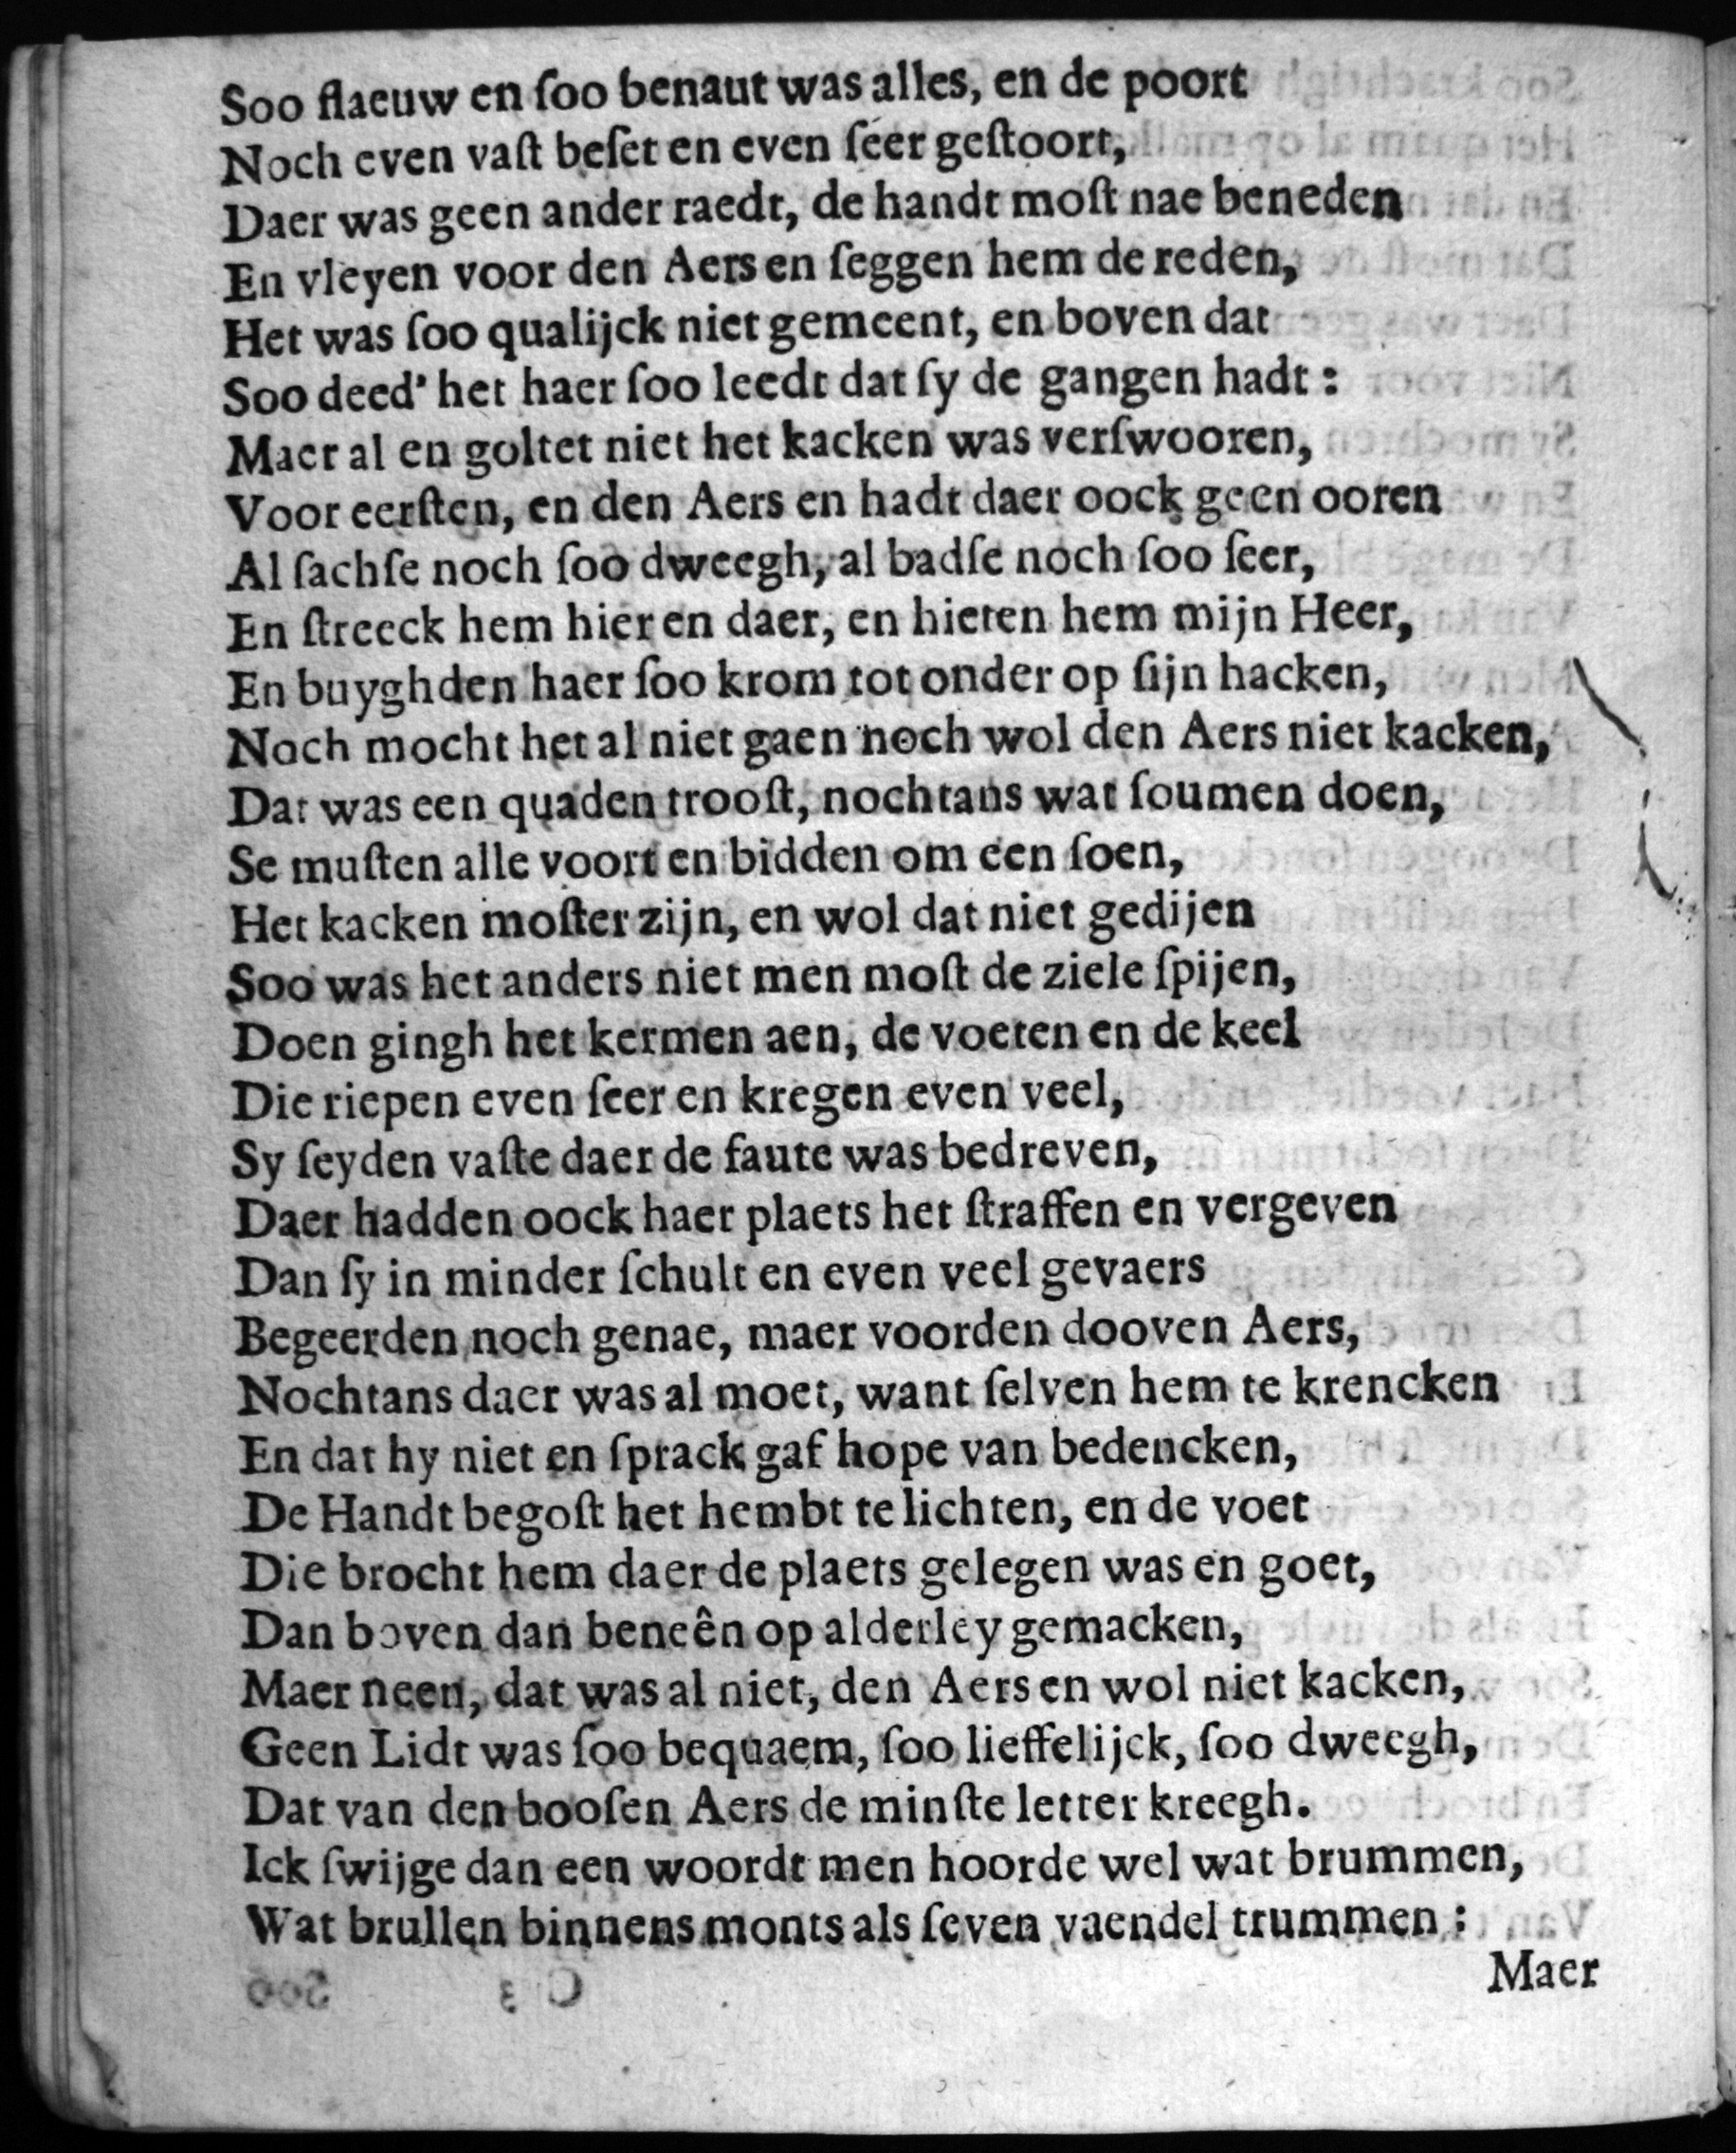 Soo flaeuw en ſoo benaut was alles, en de poort
Noch even vaſt beſet en even ſeer geſtoort,
Daer was geen ander raedt, de handt moſt nae beneden
En vleyen voor den Aers en ſeggen hem de reden,
Het was ſoo qualijck niet gemeent, en boven dat
Soo deed' het haer ſoo leedt dat ſy de gangen hadt:
Maer al en goltet niet het kacken was verſwooren,
Voor eerſten, en den Aers en hadt daer oock geen ooren
Al ſachſe noch ſoo dweegh, al badſe noch ſoo ſeer,
En ſtreeck hem hier en daer, en hieten hem mijn Heer,
En buyghden haer ſoo krom tot onder op ſijn hacken,
Noch mocht het al niet gaen noch wol den Aers niet kacken,
Dat was een quaden trooſt, nochtans wat ſoumen doen,
Se muſten alle voort en bidden om een ſoen,
Het kacken moſter zijn, en wol dat niet gedijen
Soo was het anders niet men moſt de ziele ſpijen,
Doen gingh het kermen aen, de voeten en de keel
Die riepen even ſeer en kregen even veel,
Sy ſeyden vaſte daer de faute was bedreven,
Daer hadden oock haer plaets het ſtraffen en vergeven
Dan ſy in minder ſchult en even veel gevaers
Begeerden noch genae, maer voorden dooven Aers,
Nochtans daer was al moet, want ſelven hem te krencken
En dat hy niet en ſprack gaf hope van bedencken,
De Handt begoſt het hembt te lichten, en de voet
Die brocht hem daer de plaets gelegen was en goet,
Dan boven dan beneên op alderley gemacken,
Maer neen, dat was al niet, den Aers en wol niet kacken,
Geen Lidt was ſoo bequaem, ſoo lieffelijck, ſoo dweegh,
Dat van den booſen Aers de minſte letter kreegh.
Ick ſwijge dan een woordt men hoorde wel wat brummen,
Wat brullen binnens monts als ſeven vaendel trummen:
Maer